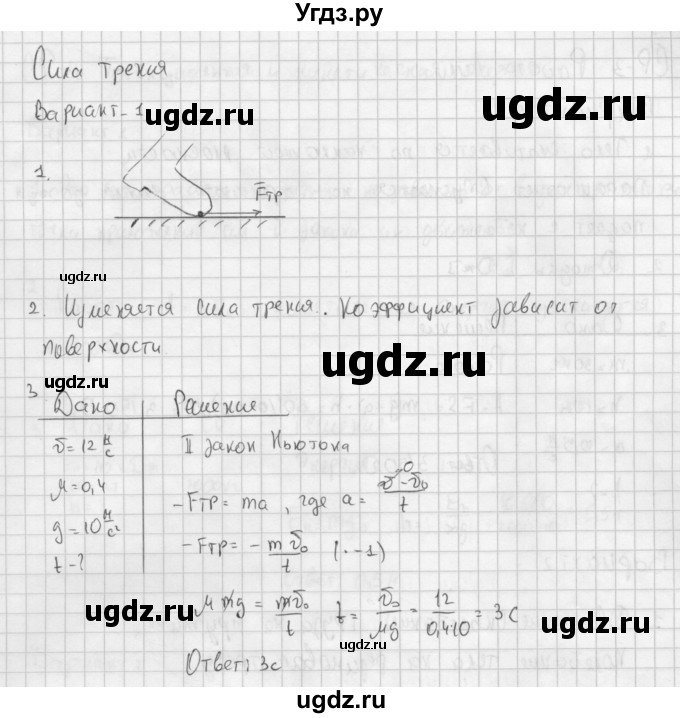 Угдз.ру
Сила трения
Вариант-1
ugdz.ru
ugdz.ru
1.
F̅тр
ugdz.ru
2. Изменяется сила трения. Коэффициент зависит от
поверхности
ugdz.ru
ugdz.ru
3
Дано
Решение
υ=12 м/с
II закон Ньютона
μ=0,4
-Fтр = ma, где a = (υ-υ₀)/t
0
g=10 м/с²
-Fтр = - mυ₀/t (·-1)
t-?
μmg = mυ₀/t t = υ₀/μg = 12/0,4·10 = 3 с
ugdz.ru
ugdz.ru
ugdz.ru
Ответ: 3с
ugdz.ru